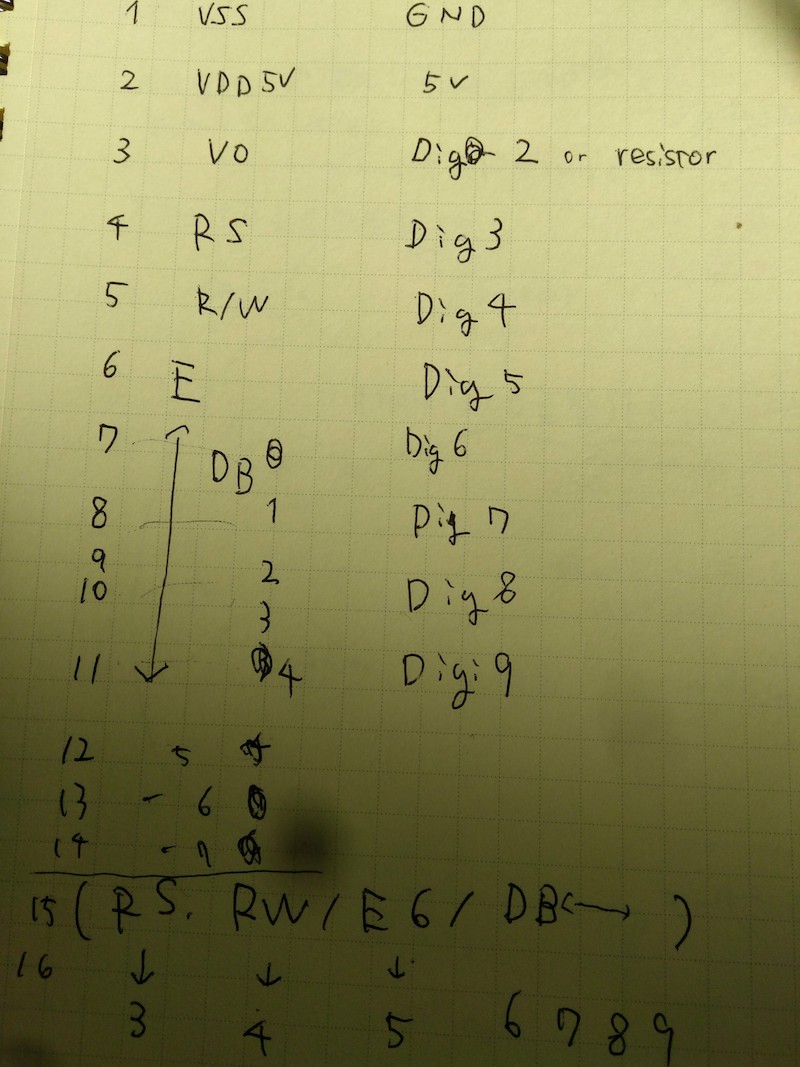 1 VSS GND
2 VDD5V 5V
3 VO Dig 2 or resistor
4 RS Dig 3
5 R/W Dig 4
6 E Dig 5
7 DB 0 Dig 6
8 1 Dig 7
9 2
10 3 Dig 8
11 4 Digi 9
12 5
13 - 6
14 - 7
15 ( RS. RW / E 6 / DB ↔ )
16 ↓ ↓ ↓
3 4 5 6 7 8 9